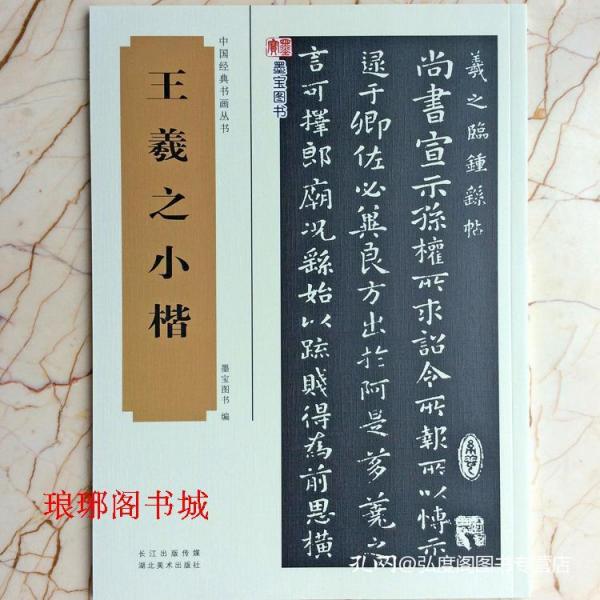 中国经典书画丛书
王羲之小楷
墨宝图书 编
琅琊阁书城
长江出版传媒
湖北美术出版社
墨宝图书
羲之临鍾繇帖
尚書宣示孫權所求詔令所報所以博示
逮于卿佐必冀良方出於阿是芻蕘之
言可擇郎廟況繇始以疏賤得為前恩橫
孔网@弘度阁图书专营店